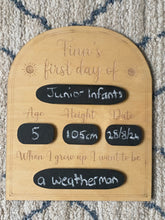 Finn's
first day of
Junior Infants
Age Height Date
5 105cm 28/8/24
When I grow up I want to be
a weatherman